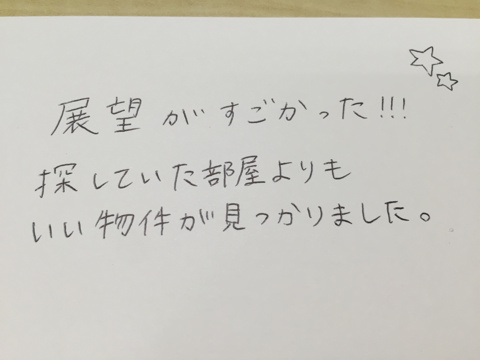 展望がすごかった!!!
探していた部屋よりも
いい物件が見つかりました。